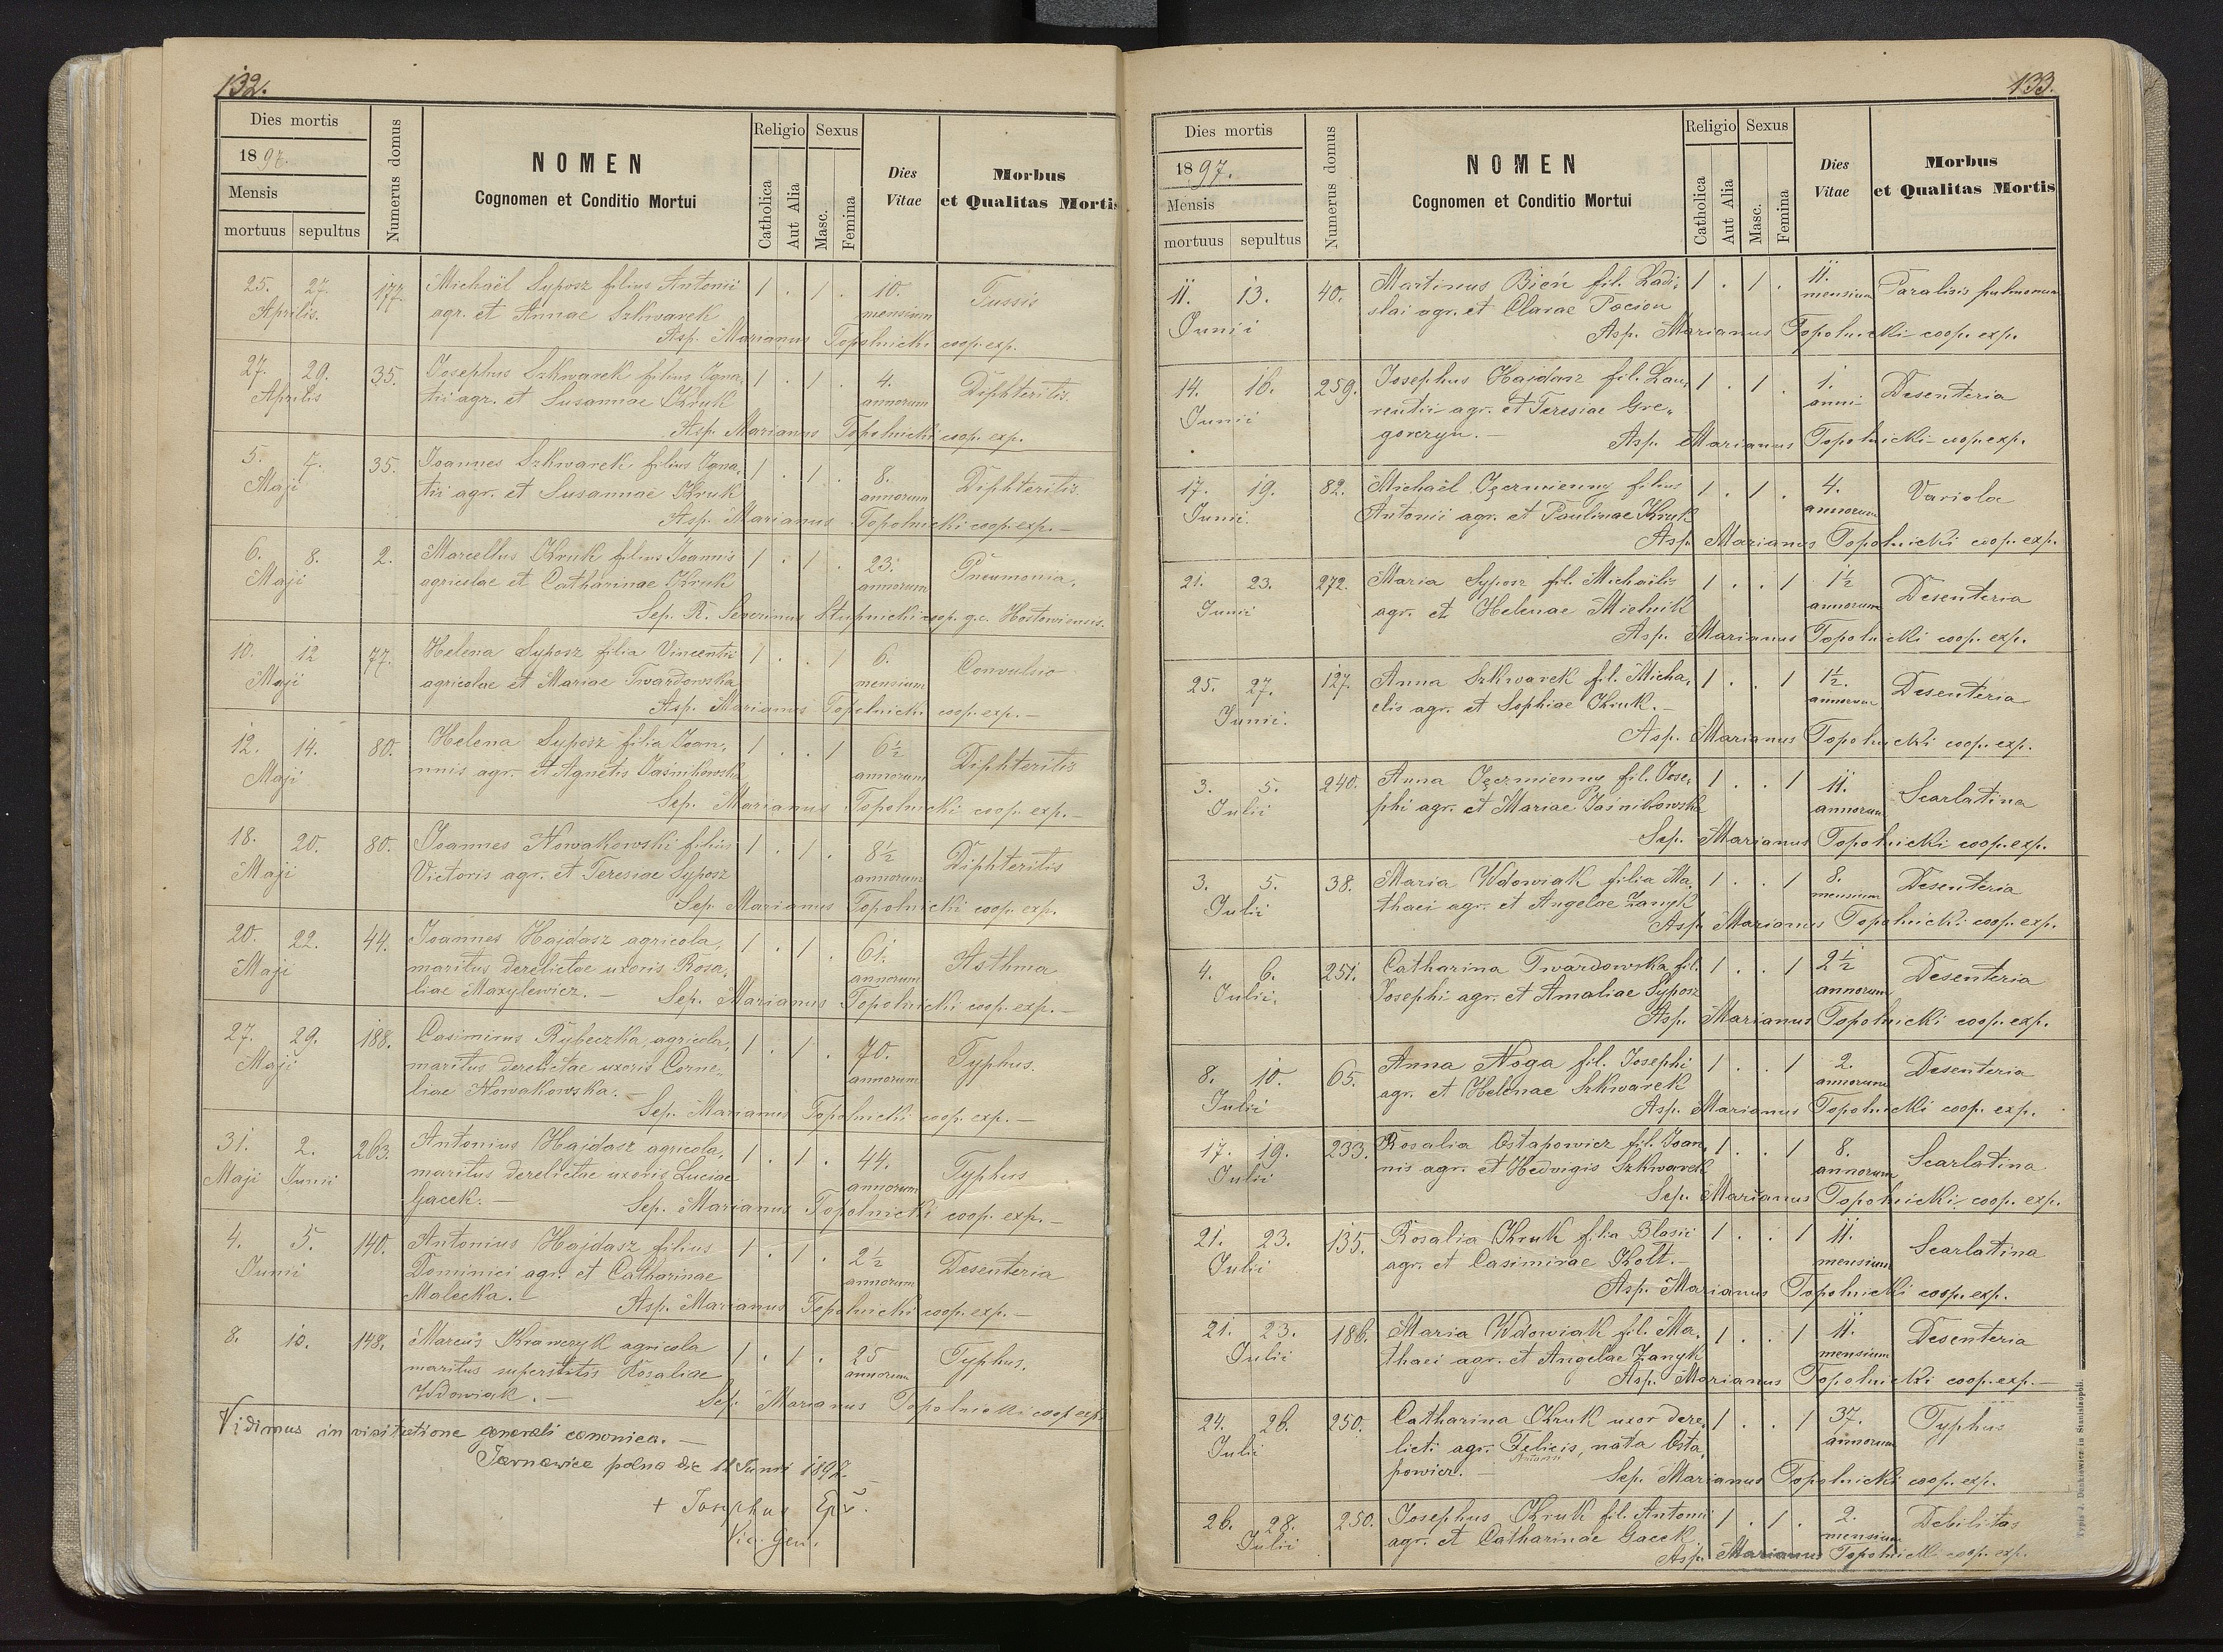 132.
Dies mortis
1897.
Mensis
mortuus sepultus
Numerus domus
NOMEN
Cognomen et Conditio Mortui
Religio
Catholica
Aut Alia
Sexus
Masc.
Femina
Dies
Vitae
Morbus
et Qualitas Mortis
25. 27. 177. Michaël Syposz filius Antonii 1 . 1 . 10. Tussis
Aprilis. agr. et Annae Szkwarek mensium
Asp. Marianus Topolnicki coop. exp.
27. 29. 35. Josephus Szkwarek filius Igna- 1 . 1 . 4. Diphteritis.
Aprilis tii agr. et Susannae Kruk annorum
Asp. Marianus Topolnicki coop. exp.
5. 7. 35. Joannes Szkwarek filius Igna- 1 . 1 . 8. Diphteritis.
Maji tii agr. et Susannae Kruk annorum
Asp. Marianus Topolnicki coop. exp. –
6. 8. 2. Marcellus Kruk filius Joannis 1 . 1 . 23. Pneumonia.
Maji agricolae et Catharinae Kruk annorum
Sep. R. Severinus Stupnicki coop. g.c. Hostoviensis.
10. 12 77. Helena Syposz filia Vincentii 1 . . 1 6. Convulsio
Maji agricolae et Mariae Twardowska mensium
Asp. Marianus Topolnicki coop. exp. –
12. 14. 80. Helena Syposz filia Joan- 1 . . 1 6½ Diphteritis
Maji nnis agr. et Agnetis Jaśnikowska annorum
Sep. Marianus Topolnicki coop. exp. –
18. 20. 80. Joannes Nowakowski filius 1 . 1 . 8½ Diphteritis
Maji Victoris agr. et Teresiae Syposz annorum
Sep. Marianus Topolnicki coop. exp.
20. 22. 44. Joannes Hajdasz agricola, 1 . 1 . 61. Asthma
Maji maritus derelictae uxoris Rosa- annorum
liae Maxylewicz. – Sep. Marianus Topolnicki coop. exp. –
27. 29. 188. Casimirus Rybeczka agricola, 1 . 1 . 70. Typhus.
Maji maritus derelictae uxoris Corne- annorum
liae Nowakowska. –
Sep. Marianus Topolnicki coop. exp. –
31. 2. 263. Antonius Hajdasz agricola, 1 . 1 . 44. Typhus
Maji Junii maritus derelictae uxoris Luciae annorum
Gacek. – Sep. Marianus Topolnicki coop. exp. –
4. 5. 140. Antonius Hajdasz filius 1 . 1 . 2½ Desenteria
Junii Dominici agr. et Catharinae annorum
Malecka. – Asp. Marianus Topolnicki coop. exp. –
8. 10. 148. Marcus Krawczyk agricola 1 . 1 . 25 Typhus.
maritus superstitis Rosaliae annorum
Wdowiak. – Sep. Marianus Topolnicki coop exp.
Vidimus in visitatione generali canonica. –
Tarnawica polna die 12 Junii 1897.
+ Josephus Epũ.
Vic. Gen.
133.
Dies mortis
1897.
Mensis
mortuus sepultus
Numerus domus
NOMEN
Cognomen et Conditio Mortui
Religio
Catholica
Aut Alia
Sexus
Masc.
Femina
Dies
Vitae
Morbus
et Qualitas Mortis
11. 13. 40. Martinus Bień fil. Ladi- 1 . 1 . 11. Paralisis pulmonum
Junii slai agr. et Clarae Pocion mensium
Asp. Marianus Topolnicki coop. exp.
14. 16. 259. Josephus Hajdasz fil. Lau- 1 . 1 . 1. Desenteria
Junii rentii agr. et Teresiae Gre- anni
gorczyn. – Asp. Marianus Topolnicki coop. exp.
17. 19. 82. Michaël Jęczmienny filius 1 . 1 . 4. Variola
Junii. Antonii agr. et Paulinae Kruk annorum
Asp. Marianus Topolnicki coop. exp.
21. 23. 272. Maria Syposz fil. Michaëlis 1 . . 1 1½ Desenteria
Junii agr. et Helenae Mielnik annorum
Asp. Marianus Topolnicki coop. exp.
25. 27. 127. Anna Szkwarek fil. Micha- 1 . . 1 1½. Desenteria
Junii. elis agr. et Sophiae Kruk. – annorum
Asp. Marianus Topolnicki coop. exp.
3. 5. 240. Anna Jęczmienny fil. Jose- 1 . . 1 11. Scarlatina
Julii phi agr. et Mariae Jaśnikowska annorum
Sep. Marianus Topolnicki coop. exp.
3. 5. 38. Maria Wdowiak filia Ma- 1 . . 1 8. Desenteria
Julii thaei agr. et Angelae Zanyk mensium
Asp. Marianus Topolnicki coop. exp.
4. 6. 251. Catharina Twardowska fil. 1 . . 1 2½ Desenteria
Julii. Josephi agr. et Amaliae Syposz annorum
Asp. Marianus Topolnicki coop. exp.
8. 10. 65. Anna Noga fil. Josephi 1 . . 1 2. Desenteria
Julii agr. et Helenae Szkwarek annorum
Asp. Marianus Topolnicki coop. exp.
17. 19. 233. Rosalia Ostapowicz fil. Joan- 1 . . 1 8. Scarlatina
Julii nis agr. et Hedvigis Szkwarek annorum
Sep. Marianus Topolnicki coop. exp.
21. 23. 135. Rosalia Kruk filia Blasii 1 . . 1 11. Scarlatina
Julii agr. et Casimirae Kott. – mensium
Asp. Marianus Topolnicki coop. exp.
21. 23. 186. Maria Wdowiak fil. Ma- 1 . . 1 11. Desenteria
Julii thaei agr. et Angelae Zanyk mensium
Asp. Marianus Topolnicki coop. exp. –
24. 26. 250. Catharina Kruk uxor dere- 1 . . 1 37. Typhus
Julii licti agr. Felicis, nata Osta- annorum
Antonii
powicz. – Sep. Marianus Topolnicki coop. exp.
26. 28. 250. Josephus Kruk fil. Antonii 1 . 1 . 2. Debilitas
Julii agr. et Catharinae Gacek mensium
Asp. Marianus Topolnicki coop. exp.
Typis J. Dankiewicz in Stanislaopoli.